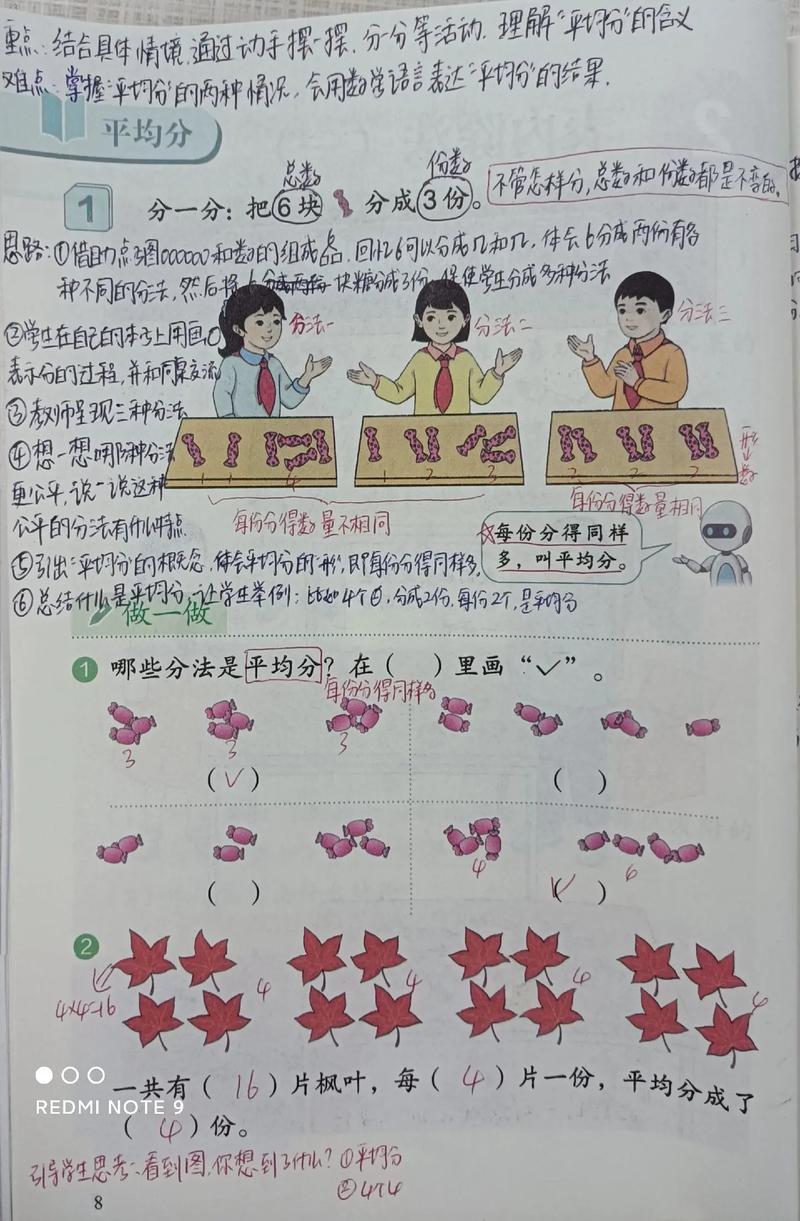 重点：结合具体情境，通过动手摆一摆，分一分等活动，理解“平均分”的含义
难点：掌握“平均分”的两种情况，会用数学语言表达“平均分”的结果。
平均分
总数
份数
不管怎样分，总数和份数都是不变的。
1 分一分：把6块 分成3份。
思路：①借助点子图000000和数的组成 回忆6可以分成几和几，体会6分成两份有各
种不同的分法，然后将 块糖分成3份， 使学生分成多种分法
分法一
分法二
分法三
②学生在自己的本子上用画○
表示分的过程，并和同桌交流
③教师呈现三种分法
④想一想哪种分法
更公平，说一说这种
公平的分法有什么特点
1 1 4
1 2 3
2 2 2
形
数
每份分得数量不相同
每份分得数量相同
☆每份分得同样
多，叫平均分。
⑤引出“平均分”的概念，体会平均分的“形”，即每份分得同样多。
⑥总结什么是平均分，让学生举例：比如4个○，分成2份，每份2个，是平均分
做一做
1 哪些分法是平均分？在（ ）里画“✓”。
每份分得同样多
3 3 3
（✓） （ ）
4 6
（ ） （✓）
2
4×4=16
4 4 4 4
一共有（ 16 ）片枫叶，每（ 4 ）片一份，平均分成了
（ 4 ）份。
REDMI NOTE 9
引导学生思考：看到图，你想到了什么？①平均分
②4个4
8